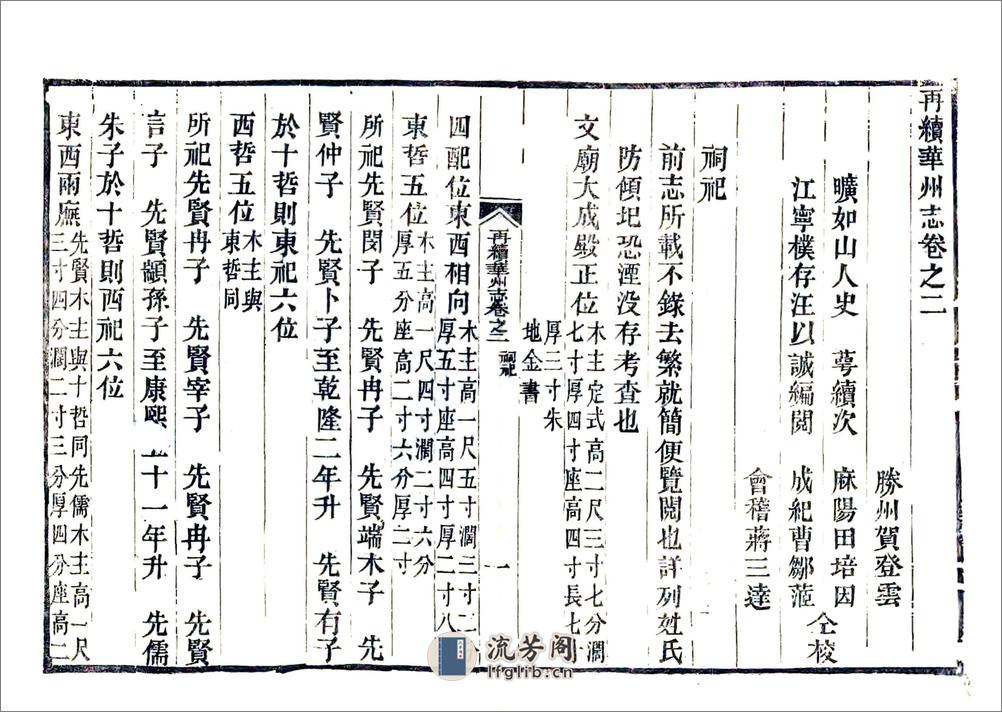 再續華州志卷之二
勝州賀登雲
曠如山人史 萼續次 麻陽田培因
江寧樸存汪以誠編閱 成紀曹鄒蒞 仝校
會稽蔣三達
祠祀
前志所載不錄去繁就簡便覽閱也詳列姓氏
防傾圮恐湮没存考查也
文廟大成殿正位木主定式高二尺三寸七分濶
七寸厚四寸座高四寸長七寸
厚三寸朱
地金書
再續華州志卷之二 祠祀 一
四配位東西相向木主高一尺五寸濶三寸二
厚五寸座高四寸厚二寸八
東哲五位木主高一尺四寸濶二寸六分
厚五分座高二寸六分厚二寸
所祀先賢閔子 先賢冉子 先賢端木子 先
賢仲子 先賢卜子至乾隆二年升 先賢有子
於十哲則東祀六位
西哲五位木主與
東哲同
所祀先賢冉子 先賢宰子 先賢冉子 先賢
言子 先賢顓孫子至康熙 十一年升 先儒
朱子於十哲則西祀六位
東西兩廡先賢木主與十哲同先儒木主高一尺
三寸四分濶二寸三分厚四分座高二
流芳阁
lfglib.cn